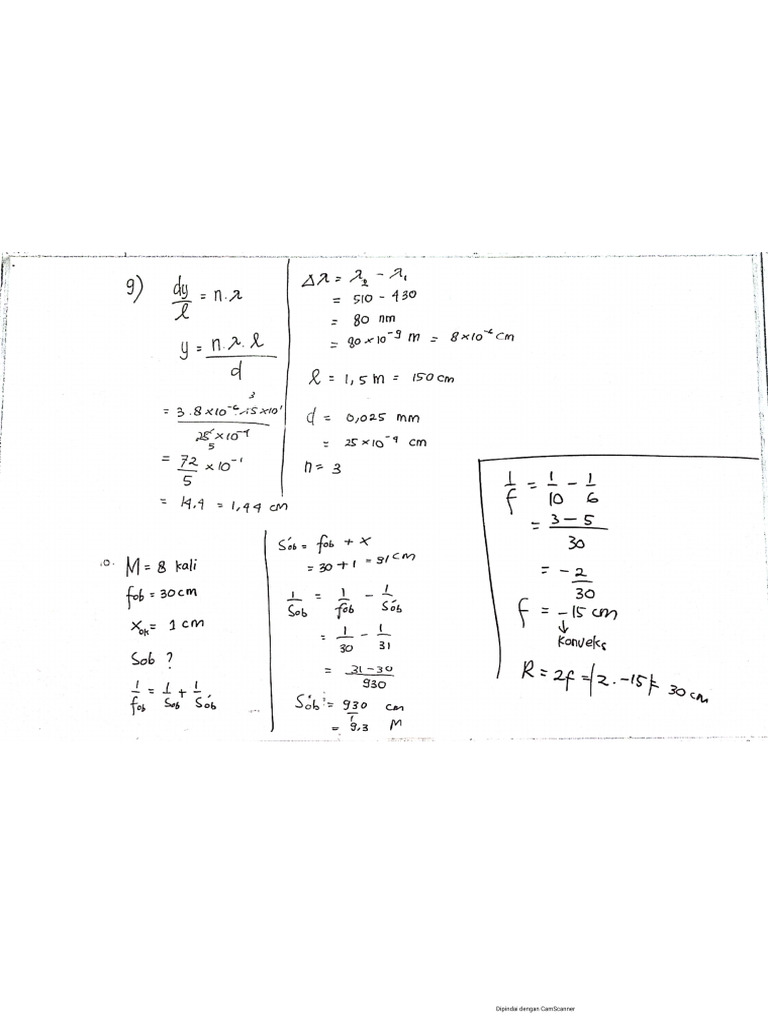 9) dy/l = n.λ
y = n.λ.l / d
= 3.8×10⁻⁶.15×10¹ / 25×10⁻⁴
3
5
= 72/5 ×10⁻¹
= 14.4 = 1,44 cm
Δλ = λ₂ - λ₁
= 510 - 430
= 80 nm
= 80×10⁻⁹ m = 8×10⁻⁶ cm
l = 1,5 m = 150 cm
d = 0,025 mm
= 25×10⁻⁴ cm
n = 3
10. M = 8 kali
fob = 30 cm
Xok = 1 cm
Sob ?
1/fob = 1/Sob + 1/S'ob
S'ob = fob + x
= 30 + 1 = 31 cm
1/Sob = 1/fob - 1/S'ob
= 1/30 - 1/31
= 31-30 / 930
S'ob = 930/1 cm
= 9,3 M
1/f = 1/10 - 1/6
= 3-5 / 30
= -2/30
f = -15 cm
↓
Konveks
R = 2f = |2.-15| = 30 cm
Dipindai dengan CamScanner